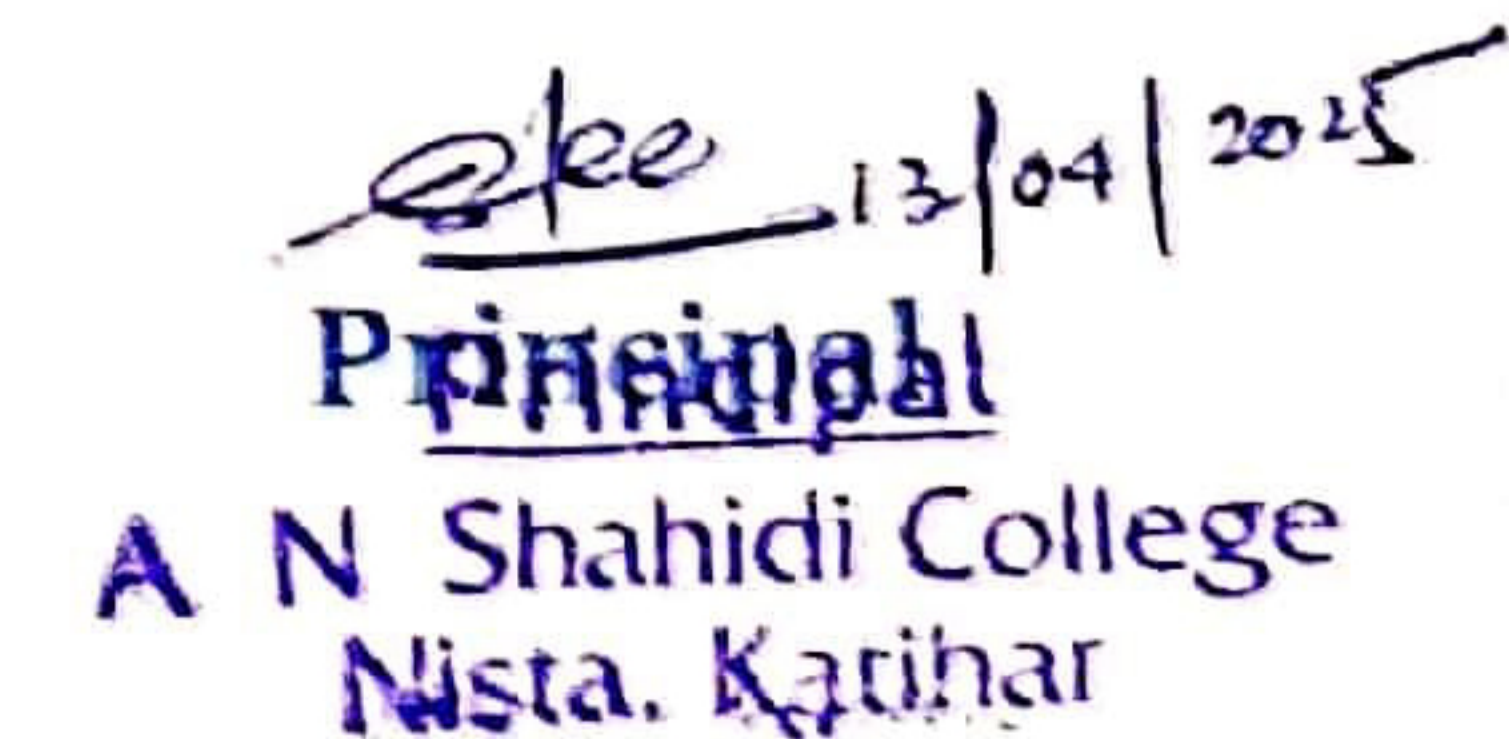 13/04/2025
Principal
A N Shahidi College
Nista. Katihar